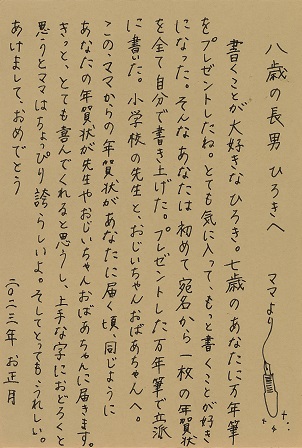 八歳の長男 ひろきへ
ママより
書くことが大好きなひろき。七歳のあなたに万年筆
をプレゼントしたね。とても気に入って、もっと書くことが好き
になった。そんなあなたは初めて宛名から一枚の年賀状
を全て自分で書き上げた。プレゼントした万年筆で立派
に書いた。小学校の先生と、おじいちゃんおばあちゃんへ。
この、ママからの年賀状があなたに届く頃、同じように
あなたの年賀状が先生やおじいちゃんおばあちゃんに届きます。
きっと、とても喜んでくれると思うし、上手な字におどろくと
思うとママはちょっぴり誇らしいよ。そしてとってもうれしい。
あけまして、おめでとう
二〇二三年 お正月